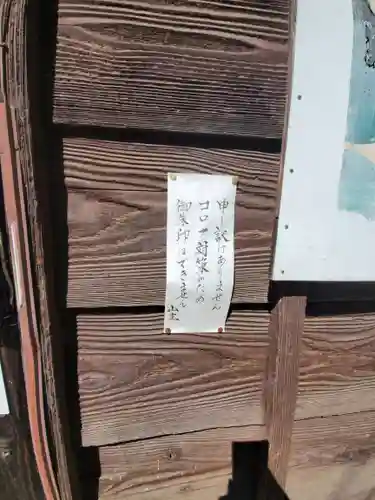 申し訳けありません
コロナ対策のため
御朱印はできません
山主